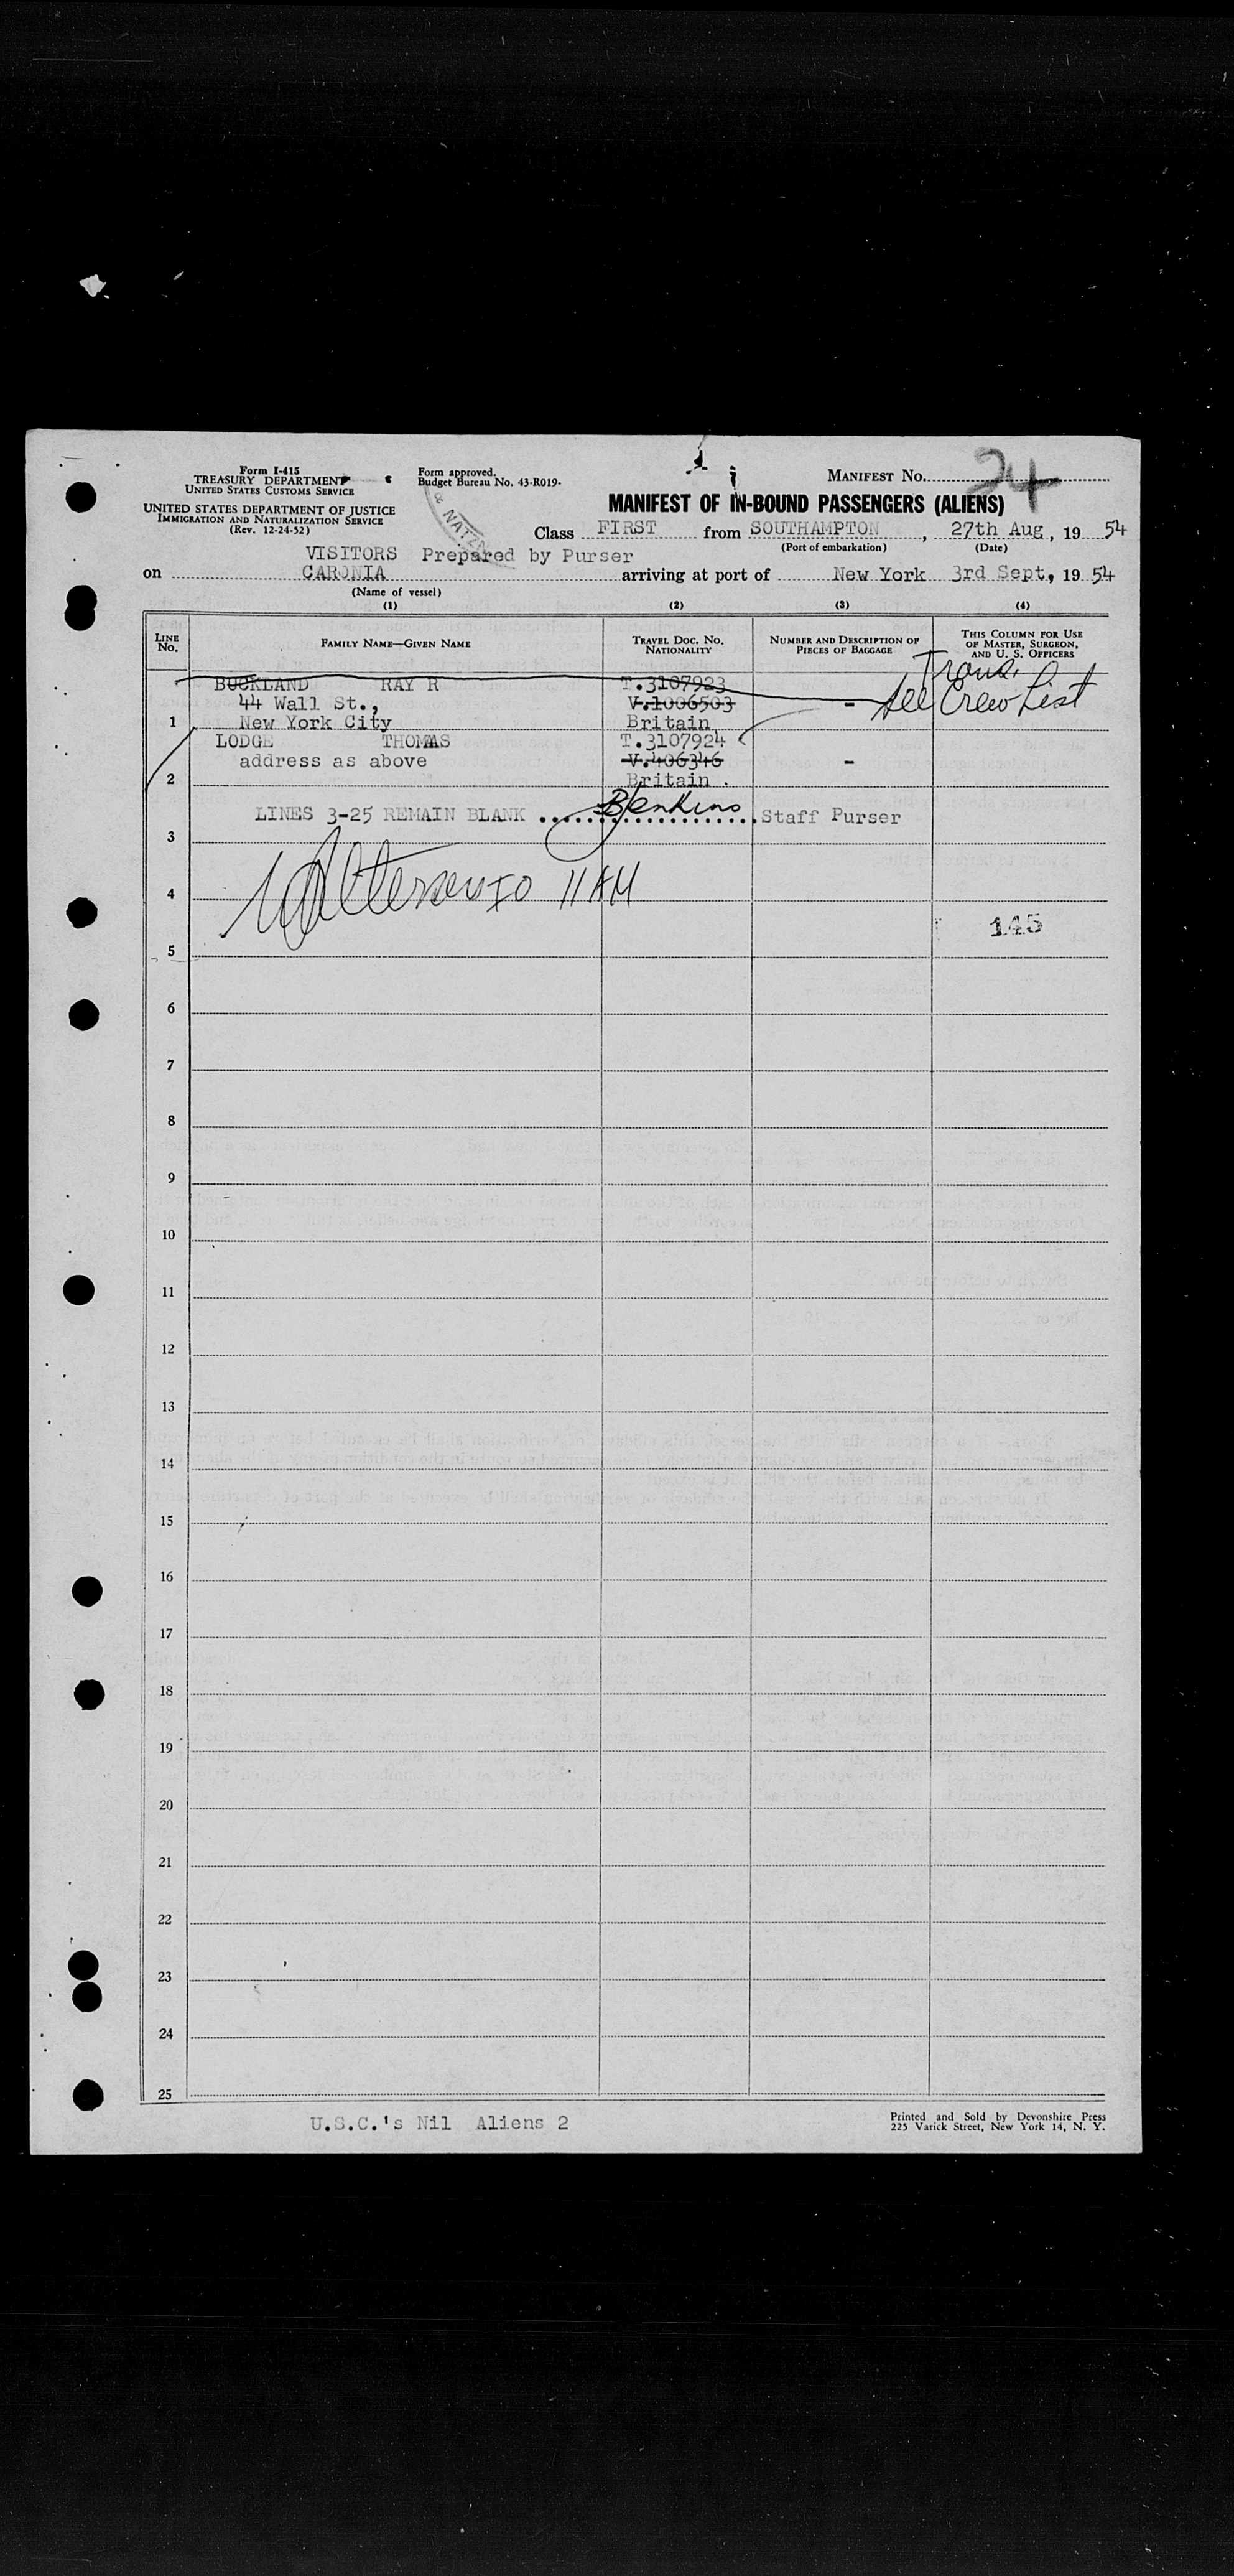 Form I-415
TREASURY DEPARTMENT
UNITED STATES CUSTOMS SERVICE
UNITED STATES DEPARTMENT OF JUSTICE
IMMIGRATION AND NATURALIZATION SERVICE
(Rev. 12-24-52)
Form approved.
Budget Bureau No. 43-R019-
MANIFEST No. 24
MANIFEST OF IN-BOUND PASSENGERS (ALIENS)
Class FIRST from SOUTHAMPTON, 27th Aug, 19 54
(Port of embarkation) (Date)
VISITORS Prepared by Purser
on CARONIA arriving at port of New York 3rd Sept, 19 54
(Name of vessel)
(1) (2) (3) (4)
LINE No. FAMILY NAME—GIVEN NAME TRAVEL DOC. No. NATIONALITY NUMBER AND DESCRIPTION OF PIECES OF BAGGAGE THIS COLUMN FOR USE OF MASTER, SURGEON, AND U. S. OFFICERS
Trans.
BUCKLAND RAY R T.3107923
44 Wall St., V.1006503 - See Crew List
1 New York City Britain
LODGE THOMAS T.3107924
address as above V.406346 -
2 Britain .
LINES 3-25 REMAIN BLANK BJenkins Staff Purser
3
4 11 AM
145
5
6
7
8
9
10
11
12
13
14
15
16
17
18
19
20
21
22
23
24
25
U.S.C.'s Nil Aliens 2
Printed and Sold by Devonshire Press
225 Varick Street, New York 14, N. Y.